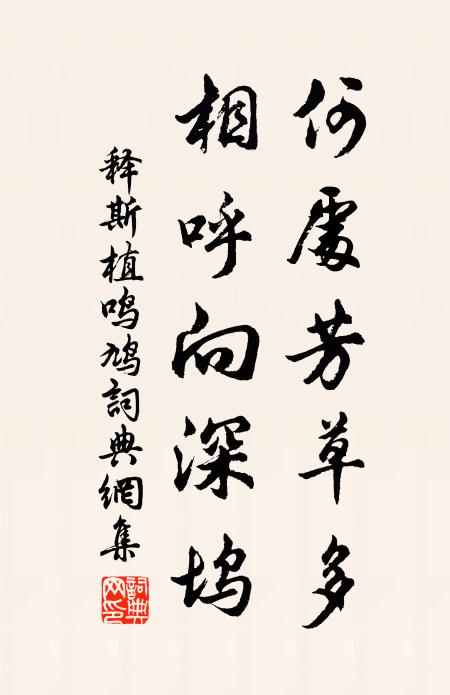 何處芳草多
相呼向深坞
释斯植鸣鸠詞典網集
詞典网印